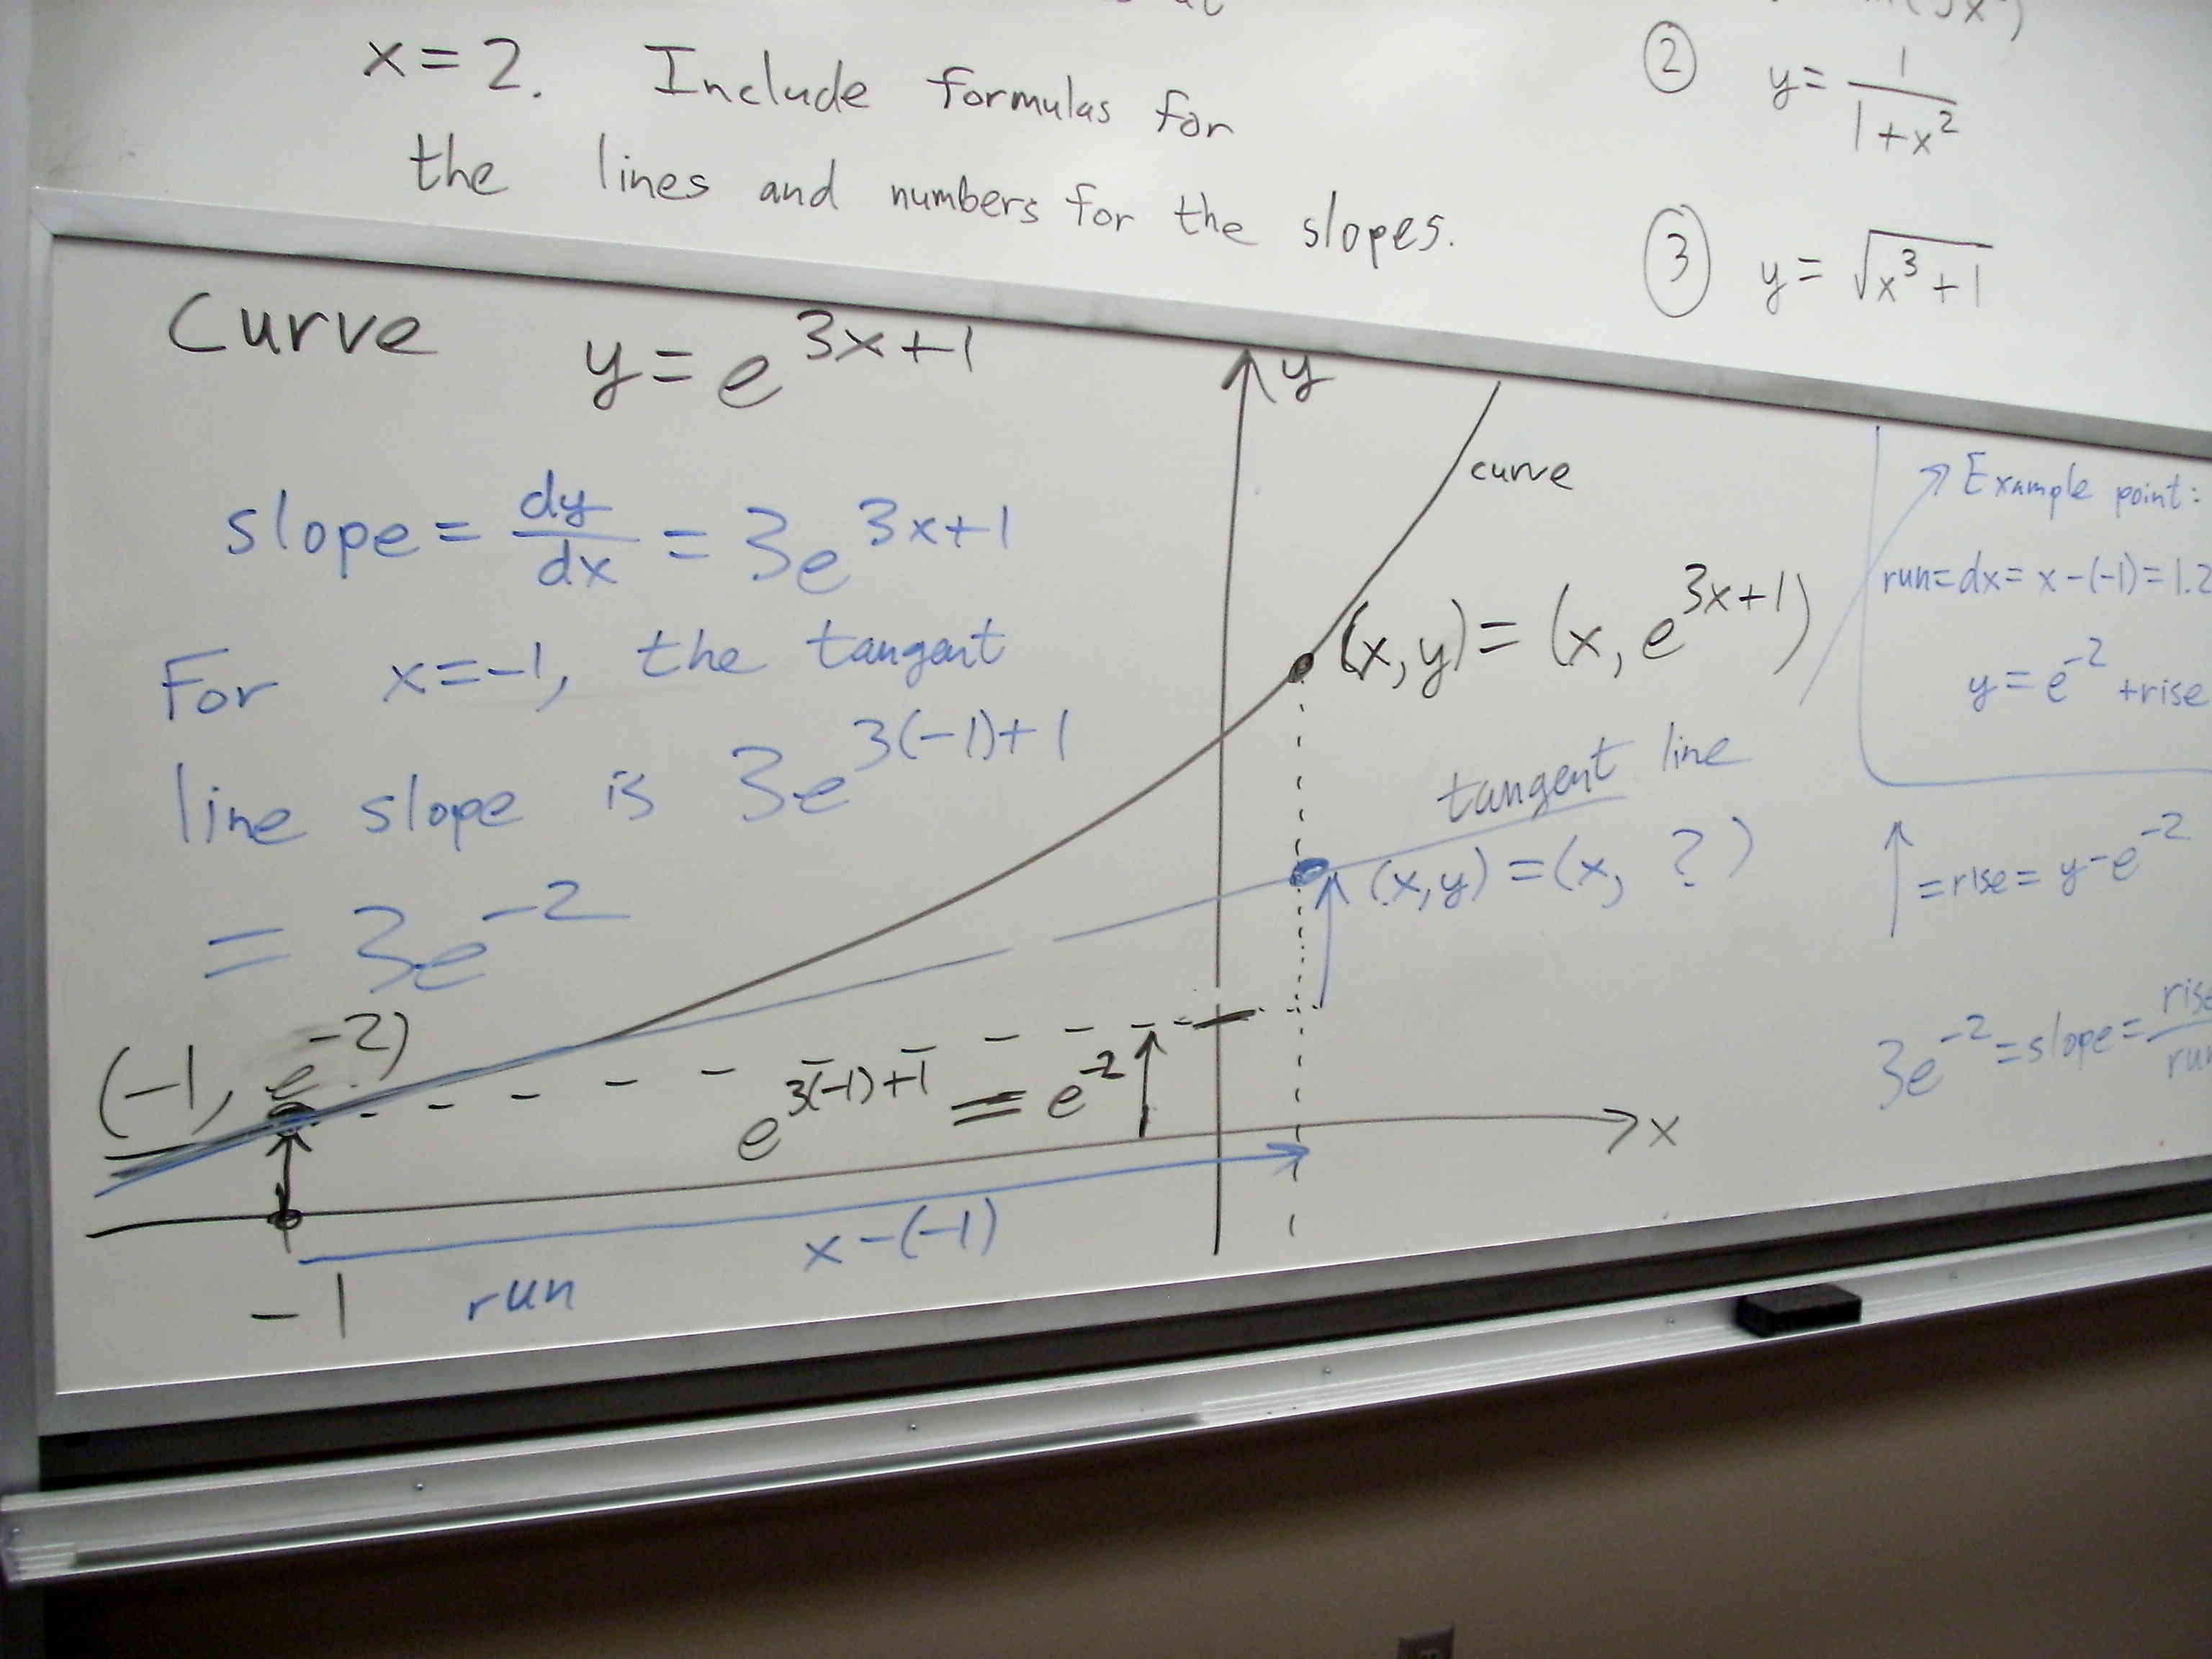 x=2. Include formulas for
the lines and numbers for the slopes.
② y= 1/(1+x²)
③ y= √(x³+1)
Curve y=e^(3x+1)
slope = dy/dx = 3e^(3x+1)
For x=-1, the tangent
line slope is 3e^(3(-1)+1)
= 3e^(-2)
(-1, e^(-2))
-1
run
x-(-1)
e^(3(-1)+1) = e^(-2)
y
curve
(x,y)=(x, e^(3x+1))
tangent line
(x,y)=(x, ?)
x
Example point:
run=dx=x-(-1)=1.2
y=e^(-2)+rise
↑=rise=y-e^(-2)
3e^(-2)=slope=rise/run